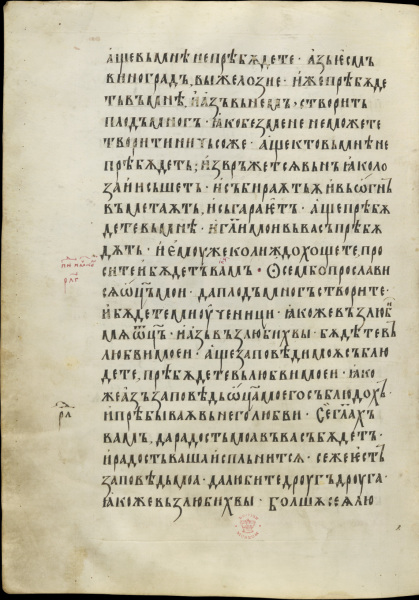 аще въ мнѣ не прѣбѫдете · азъ іесмъ
виноградъ, вы же лозие · иже прѣбѫде
тъ въ мънѣ, и азъ въ немь, створить
плодъ многъ · ꙗко без мене не можете
творити ничьсоже · аще кто въ мнѣ не
прѣбѫдетъ, извръжетсѧ вънъ ꙗко ло
за и исышетъ · и събираѫтъ ѫ и въ огнь
въмѣтаѫтъ, и съгараіетъ · аще прѣбѫ
дете въ мнѣ · и гл҃и мои въ васъ прѣбѫ
дѫтъ · и іемоуже колиждо хощете, про
сите и бѫдетъ вамъ · Ѡ семь бо прослави
сѧ ѡц҃ъ мои · да плодъ многъ створите ·
и бѫдете мои оученици · ꙗкоже възлюби
мѧ ѡц҃ъ · и азъ възлюбихъ вы · бѫдете въ
любви моеи · аще заповѣди моѫ съблю
дете, прѣбѫдете въ любви моеи · ꙗко
же азъ заповѣдь ѡц҃а моего съблюдохъ ·
и прѣбываѫ въ него любви · Се гл҃ахъ
вамъ, да радость моа въ васъ бѫдетъ ·
и радость ваша исплънитсѧ · се же іестъ
заповѣдь моа · да любите дроугъ дроуга ·
ꙗкоже възлюбихъ вы · болшѫ сеѧ лю
рл